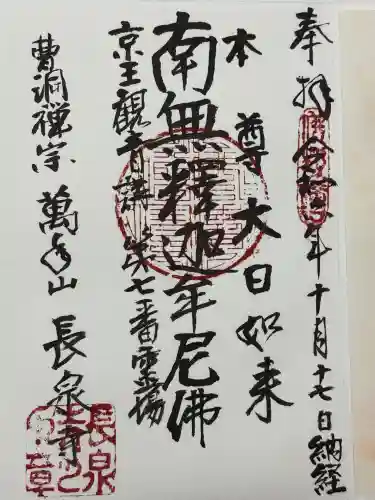 奉拝 令和 年十月十七日納経
本尊大日如来
南無釋迦牟尼佛
京王觀音講第七番霊場
曹洞禅宗 萬 山 長泉寺
長泉
章